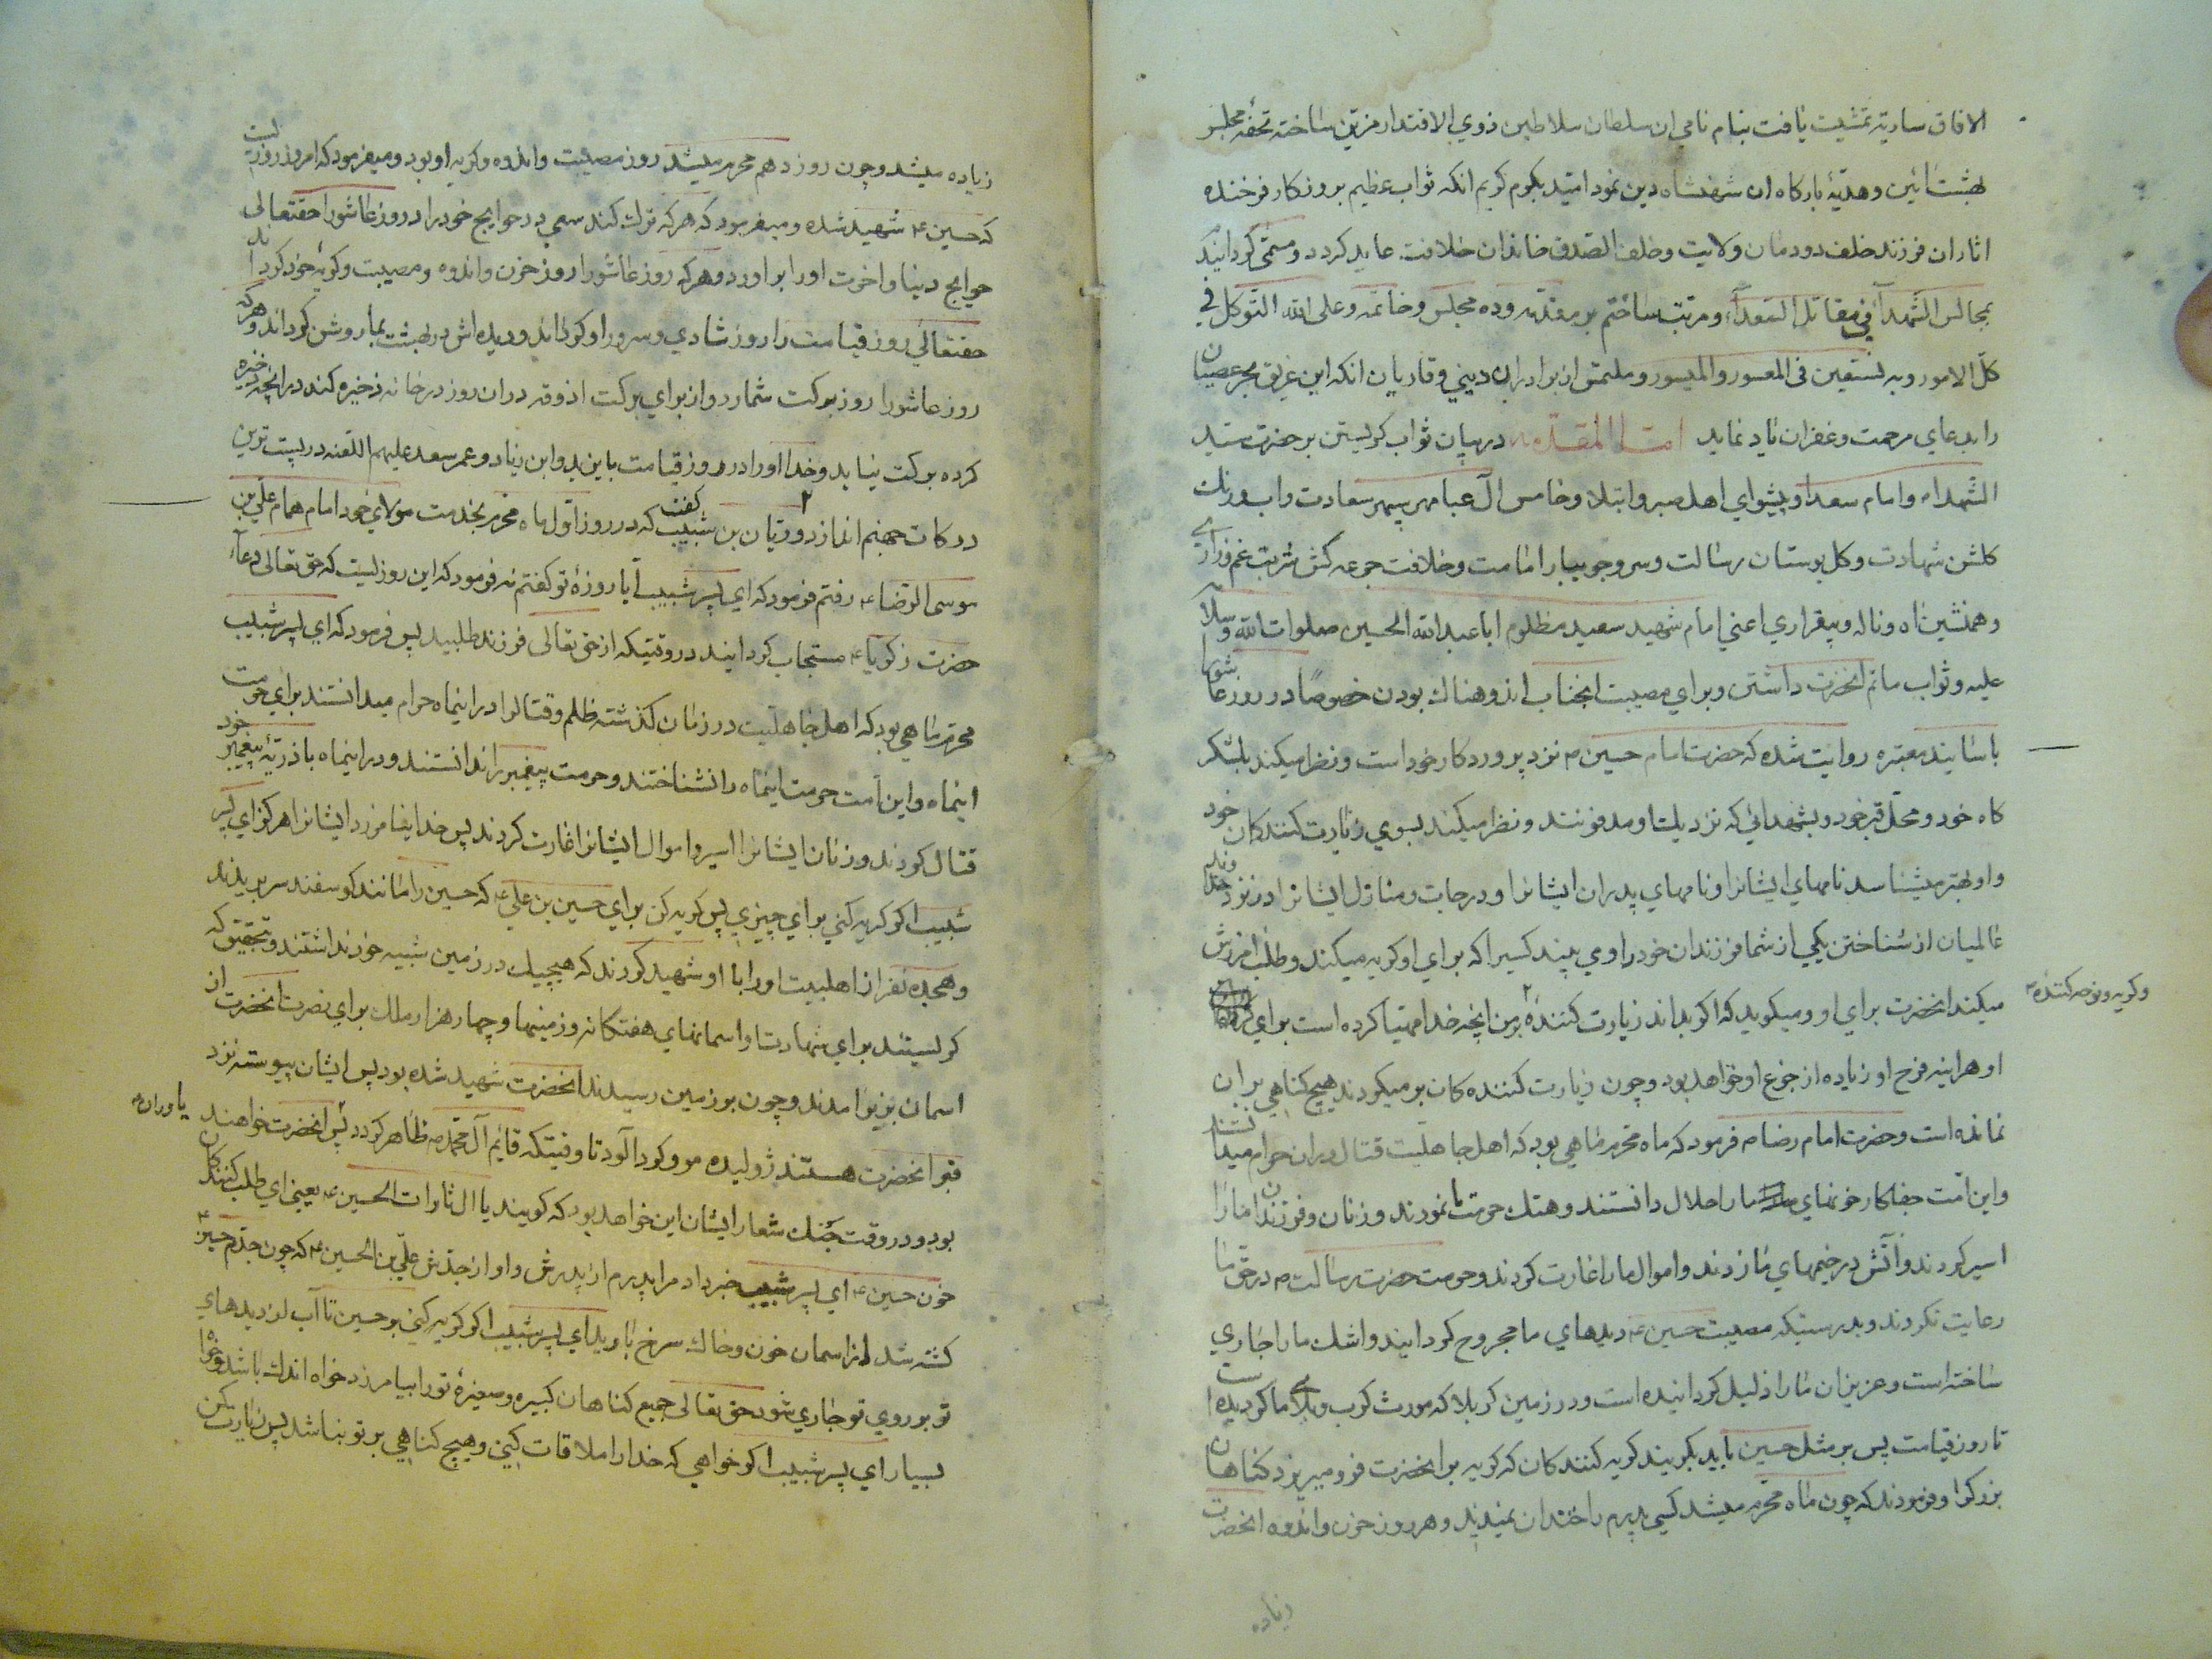 الافاق سادیه تمشیت یافت بنام نامی ان سلطان سلاطین ذوی الاقتدار مزین ساخته تحفهٔ مجلس
بهشت ائین و هدیهٔ بارکاه ان شهنشاه دین نمود امید بکرم کریم انکه ثواب عظیم بروزکار فرخنده
اثار ان فرزند خلف دودمان ولایت و خلف الصدق خاندان خلافت عاید کردد و مسمی کردانید
بمجالس الشهدآء فی مقاتل السعدآء و مرتب ساختم بر مقدمه و ده مجلس و خاتمه و علی الله التوکل فی
کل الامور و به نستعین فی المعسور و المیسور و ملتمس از برادران دینی و قاریان انکه این غریق بحر عصیان
را بدعای مرحمت و غفران یاد نماید امّا المقدّمه در بیان ثواب کریستن بر حضرت سید
الشهداء و امام سعدا و پیشوای اهل صبر و ابتلا و خامس آل عبا مهر سپهر سعادت و اب و رنك
کلشن شهادت و کل بوستان رسالت و سرو جویبار امامت و خلافت جرعه کش شربت غم فزای
و همنشین اه و ناله و بیقراری اعنی امام شهید سعید مظلوم ابا عبدالله الحسین صلوات الله و سلامه
علیه و ثواب ماتم انحضرت داشتن و برای مصیبت انجناب اندوهناك بودن خصوصًا در روز عاشورا
باسانید معتبره روایت شده که حضرت امام حسین ع نزد پروردکار خود است و نظر میکند بلشکر
کاه خود و محل قبر خود و بشهدائی که نزدیك او مدفونند و نظر میکند بسوی زیارت کنندکان خود
و او بهتر میشناسد نامهای ایشانرا و نامهای پدران ایشانرا و درجات و منازل ایشانرا در نزد خداوند
عالمیان از شناختن یکی از شما فرزندان خود را و می بیند کسیرا که برای او کریه میکند و طلب امرزش
میکند انحضرت برای او و میکوید که اکر بداند زیارت کنندهٔ من انچه خدا مهیا کرده است برای
و کریه و نوحه کننده
او هراینه فرح او زیاده از جزع او خواهد بود و چون زیارت کننده کان بر میکردند هیچ کناهی بر ان
نمانده است و حضرت امام رضا ع فرمود که ماه محرم ماهی بود که اهل جاهلیت قتال در ان حرام میدانستند
و این امّت جفاکار خونهای ما را حلال دانستند و هتك حرمت ما نمودند و زنان و فرزندان ما را
اسیر کردند و آتش در خیمهای ما زدند و اموال ما را غارت کردند و حرمت حضرت رسالت ص در حق ما
رعایت نکردند و بدرستیکه مصیبت حسین ع دیدهای ما مجروح کردانیند و اشك ما را جاری
ساخته است و عزیزان ما را ذلیل کردانیده است و در زمین کربلا که مورث کرب و بلای ما کردیده است
تا روز قیامت پس بر مثل حسین باید بکریند کریه کنندکان که کریه بر انحضرت فرو میریزد کناهان
بزرك را و فرمودند که چون ماه محرم میشد کسی پدرم را خندان نمیدید و هر روز حزن و اندوه انحضرت
زیاده
زیاده میشد و چون روز دهم محرم میشد روز مصیبت و اندوه و کریه او بود و میفرمود که امروز روزیست
که حسین ع شهید شده و میفرمود که هر که ترك کند سعی در حوایج خود را در روز عاشورا حقتعالی
حوایج دنیا و اخرت او را براورد و هر که روز عاشورا روز حزن و اندوه و مصیبت و کریهٔ خود کرداند
حقتعالی روز قیامت را روز شادی و سرور او کرداند و دیده اش در بهشت بما روشن کرداند و هر که
روز عاشورا روز برکت شمارد و از برای برکت اذوقه در ان روز در خانه ذخیره کند در انچه ذخیره
کرده برکت نیابد و خدا او را در روز قیامت با یزید و ابن زیاد و عمر سعد علیهم اللعنه در پست ترین
درکات جهنم اندازد و ریان بن شبیب کفت که در روز اول ماه محرم بخدمت مولای خود امام همام علی بن
موسی الرضا ع رفتم فرمود که ای پسر شبیب آیا روزهٔ تو کفتم نه فرمود که این روزیست که حق تعالی دعآء
حضرت زکریا ع مستجاب کردانیند در وقتیکه از حق تعالی فرزند طلبید پس فرمود که ای پسر شبیب
محرم ماهی بود که اهل جاهلیت در زمان کذشته ظلم و قتال را در اینماه حرام میدانستند برای حرمت
اینماه و این امت حرمت اینماه را نشناختند و حرمت پیغمبر را ندانستند و در اینماه با ذریهٔ پیغمبر خود
قتال کردند و زنان ایشانرا اسیر و اموال ایشانرا غارت کردند پس خدا نیامرزد ایشانرا هرکز ای پسر
شبیب اکر کریه کنی برای چیزی پس کریه کن برای حسین بن علی ع که حسین را مانند کوسفند سر بریدند
و هجده نفر از اهلبیت او را با او شهید کردند که هیچیك در زمین شبیه خود نداشتند و بتحقیق که
کریستند برای شهادت او اسمانهای هفتکانه و زمینها و چهار هزار ملك برای نصرت انحضرت از
اسمان بزیر امدند و چون بر زمین رسیدند انحضرت شهید شده بود پس ایشان پیوسته نزد
قبر انحضرت هستند ژولیده مو و کرد آلود تا وقتیکه قایم آل محمد ص ظاهر کردد پس انحضرت خواهند
یاوران
بود و در وقت جنك شعار ایشان این خواهد بود که کویند یا ال ثارات الحسین ع یعنی ای طلب کنندکان
خون حسین ع ای پسر شبیب خبر داد مرا پدرم از پدرش و او از جدش علی بن الحسین ع که چون جدم حسین ع
کشته شد از اسمان خون و خاك سرخ بارید ای پسر شبیب اکر کریه کنی بر حسین تا آب از دیدهای
تو بر روی تو جاری شود حق تعالی جمیع کناهان کبیره و صغیرهٔ تو را بیامرزد خواه اندك باشد و خواه
بسیار ای پسر شبیب اکر خواهی که خدا را ملاقات کنی و هیچ کناهی بر تو نباشد پس زیارت کن